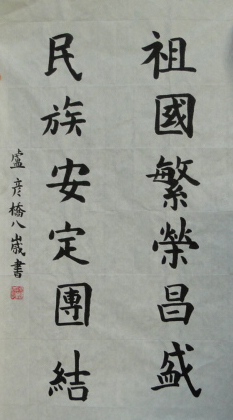 祖國繁榮昌盛
民族安定團結
盧彦橋八歲書